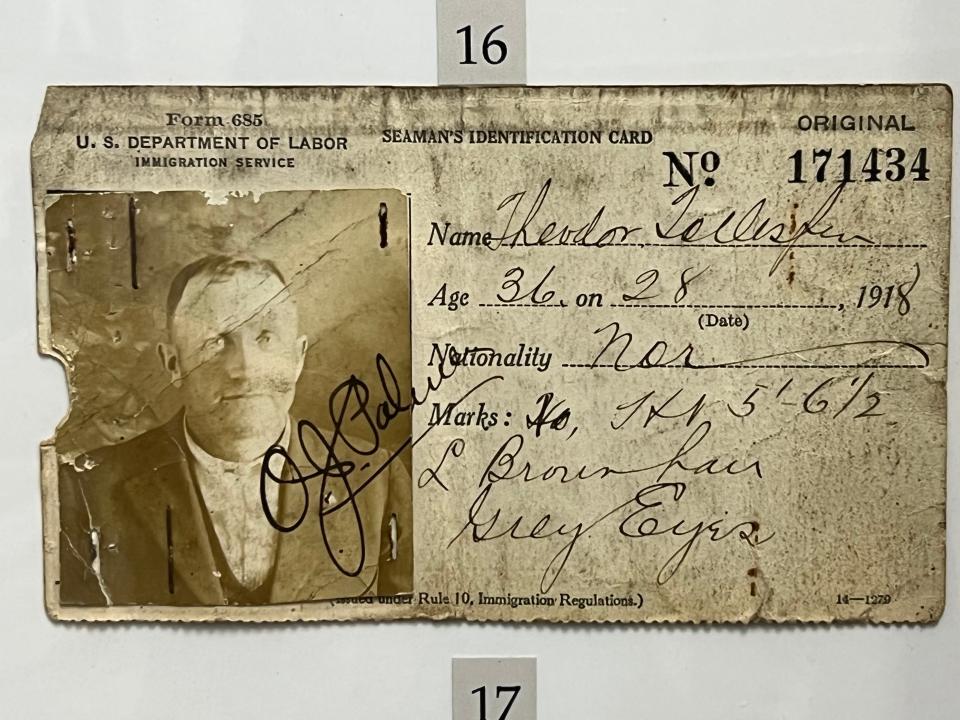 16
Form 685
U. S. DEPARTMENT OF LABOR
IMMIGRATION SERVICE
SEAMAN'S IDENTIFICATION CARD
ORIGINAL
Nº 171434
Name Theodor Tollefsen
Age 36. on 28, 1918
(Date)
Nationality Nor
Marks: No, Ht 5'-6 1/2
L Brown hair
Grey Eyes
(Issued under Rule 10, Immigration Regulations.)
14—1279
17